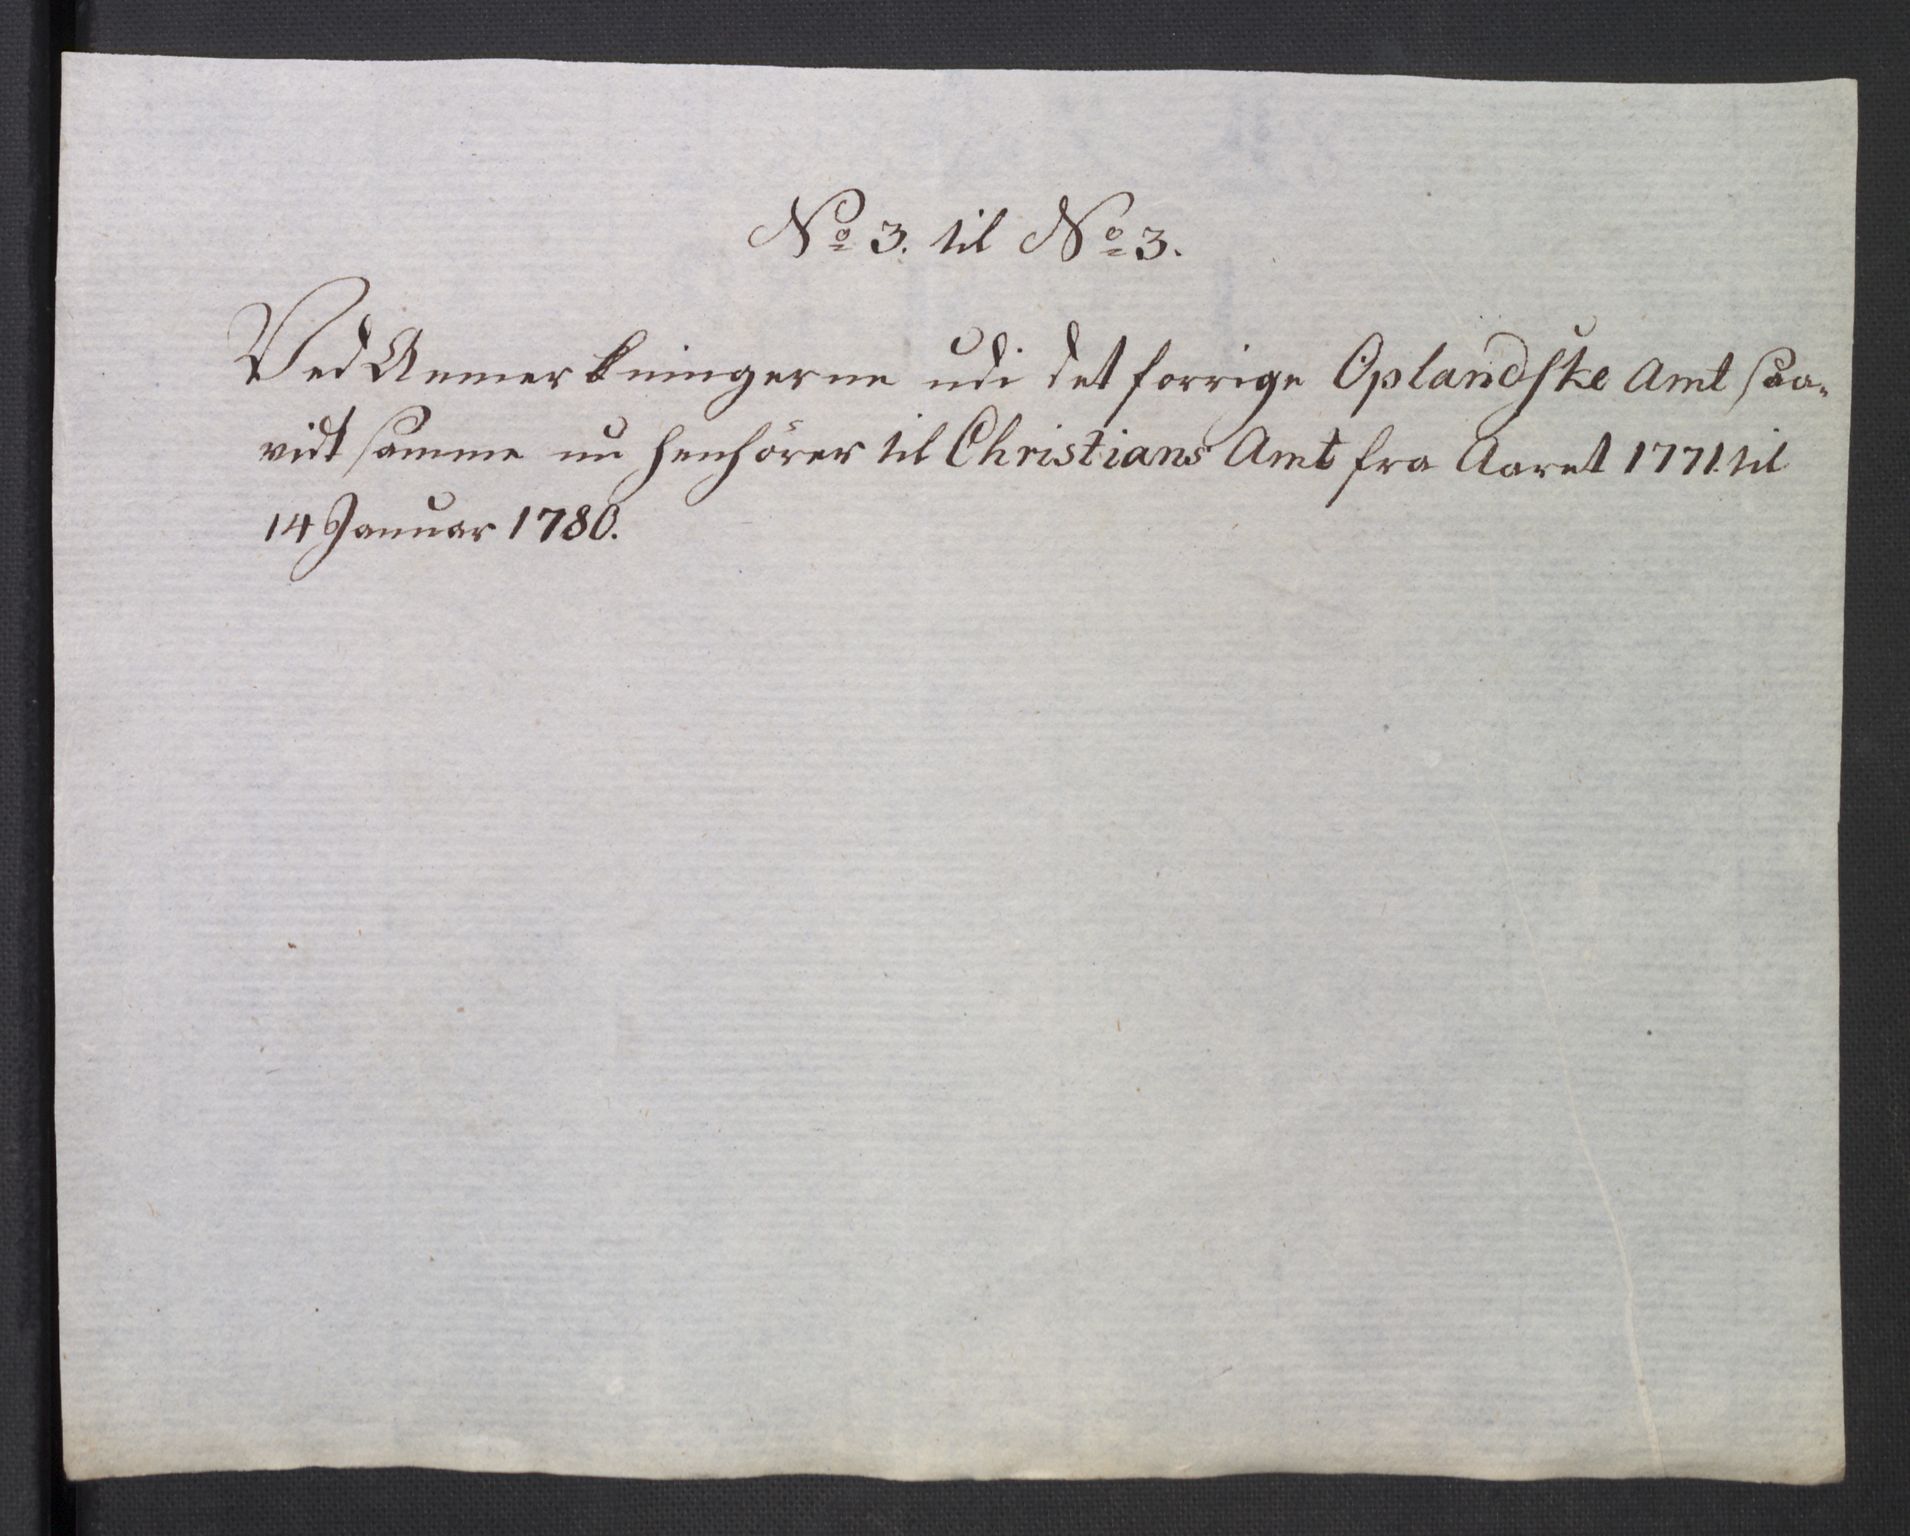 No 3. til No 3.
Ved Anmerkningerne udi det forrige Oplandske Amt saa-
vidt samme nu henhörer til Christians Amt fra Aaret 1771. til
14 Januar 1780.